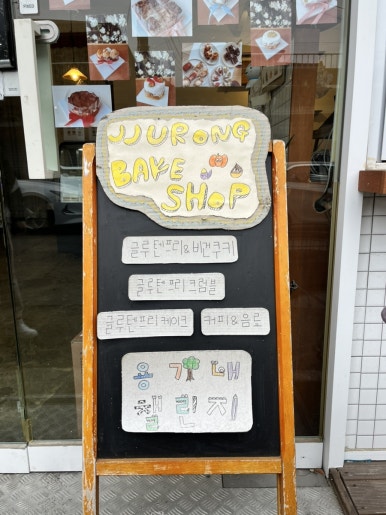 JJURONG
BAKE
SHOP
글루텐프리&비건쿠키
글루텐프리크럼블
글루텐프리케이크
커피&음료
용기내
챌린지